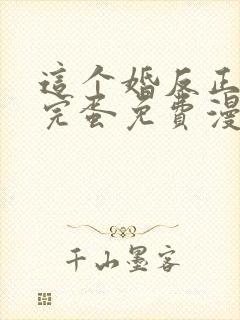 這个婚反正
完蛋免費漫
千山墨客